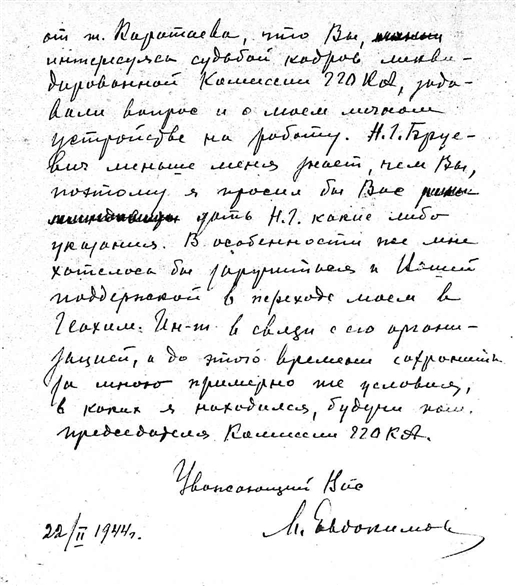 от т. Каратаева, что Вы,
интересуясь судьбой кадров ликви-
дированной Комиссии ГГО КА, зада-
вали вопрос и о моем личном
устройстве на работу. Н.Г. Бруе-
вич меньше меня знает, чем Вы,
поэтому я просил бы Вас
дать Н.Г. какие либо
указания. В особенности же мне
хотелось бы заручиться и Вашей
поддержкой в переходе моем в
Геохим. Ин-т в связи с его органи-
зацией, а до этого времени сохранить
за мною примерно те же условия,
в каких я находился, будучи пом.
председателя Комиссии ГГО КА.
Уважающий Вас
22/II 1944г. Евдокимов